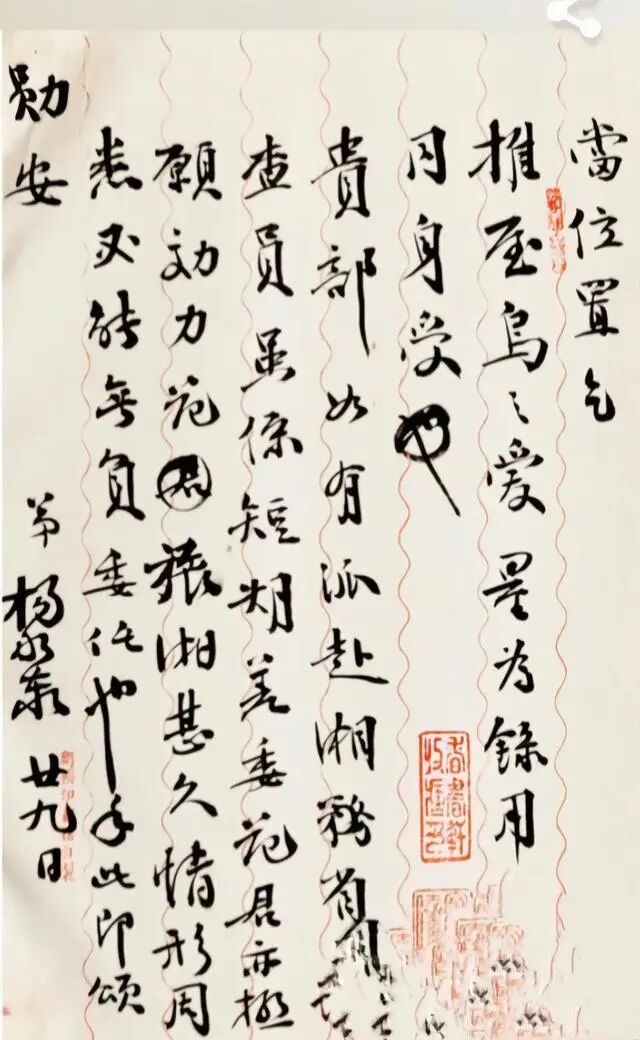 當位置乞
推屋烏之愛量為錄用
同身受也
貴部如有派赴湘務
查員虽係短期差委范君亦極
願効力范君旅湘甚久情形周
悉必能無負委任也手此即頌
勛安
弟楊永泰廿九日